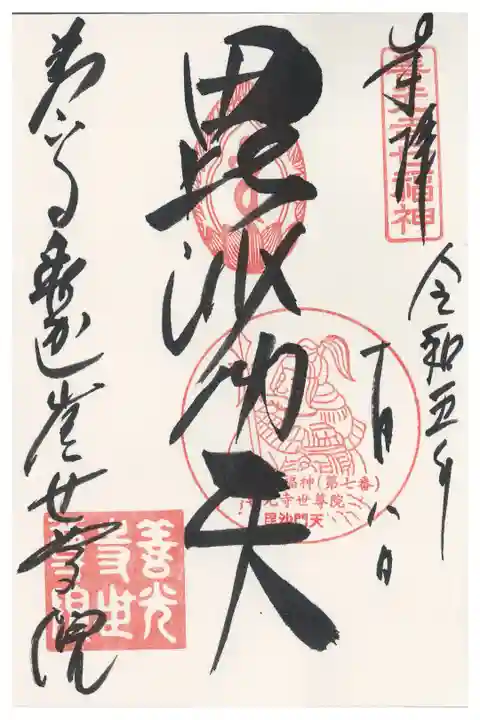 奉拝
善光寺七福神
令和五年
十月八日
毘沙門天
福神(第七番)
光寺世尊院
毘沙門天
世尊院
善光
寺世
尊院